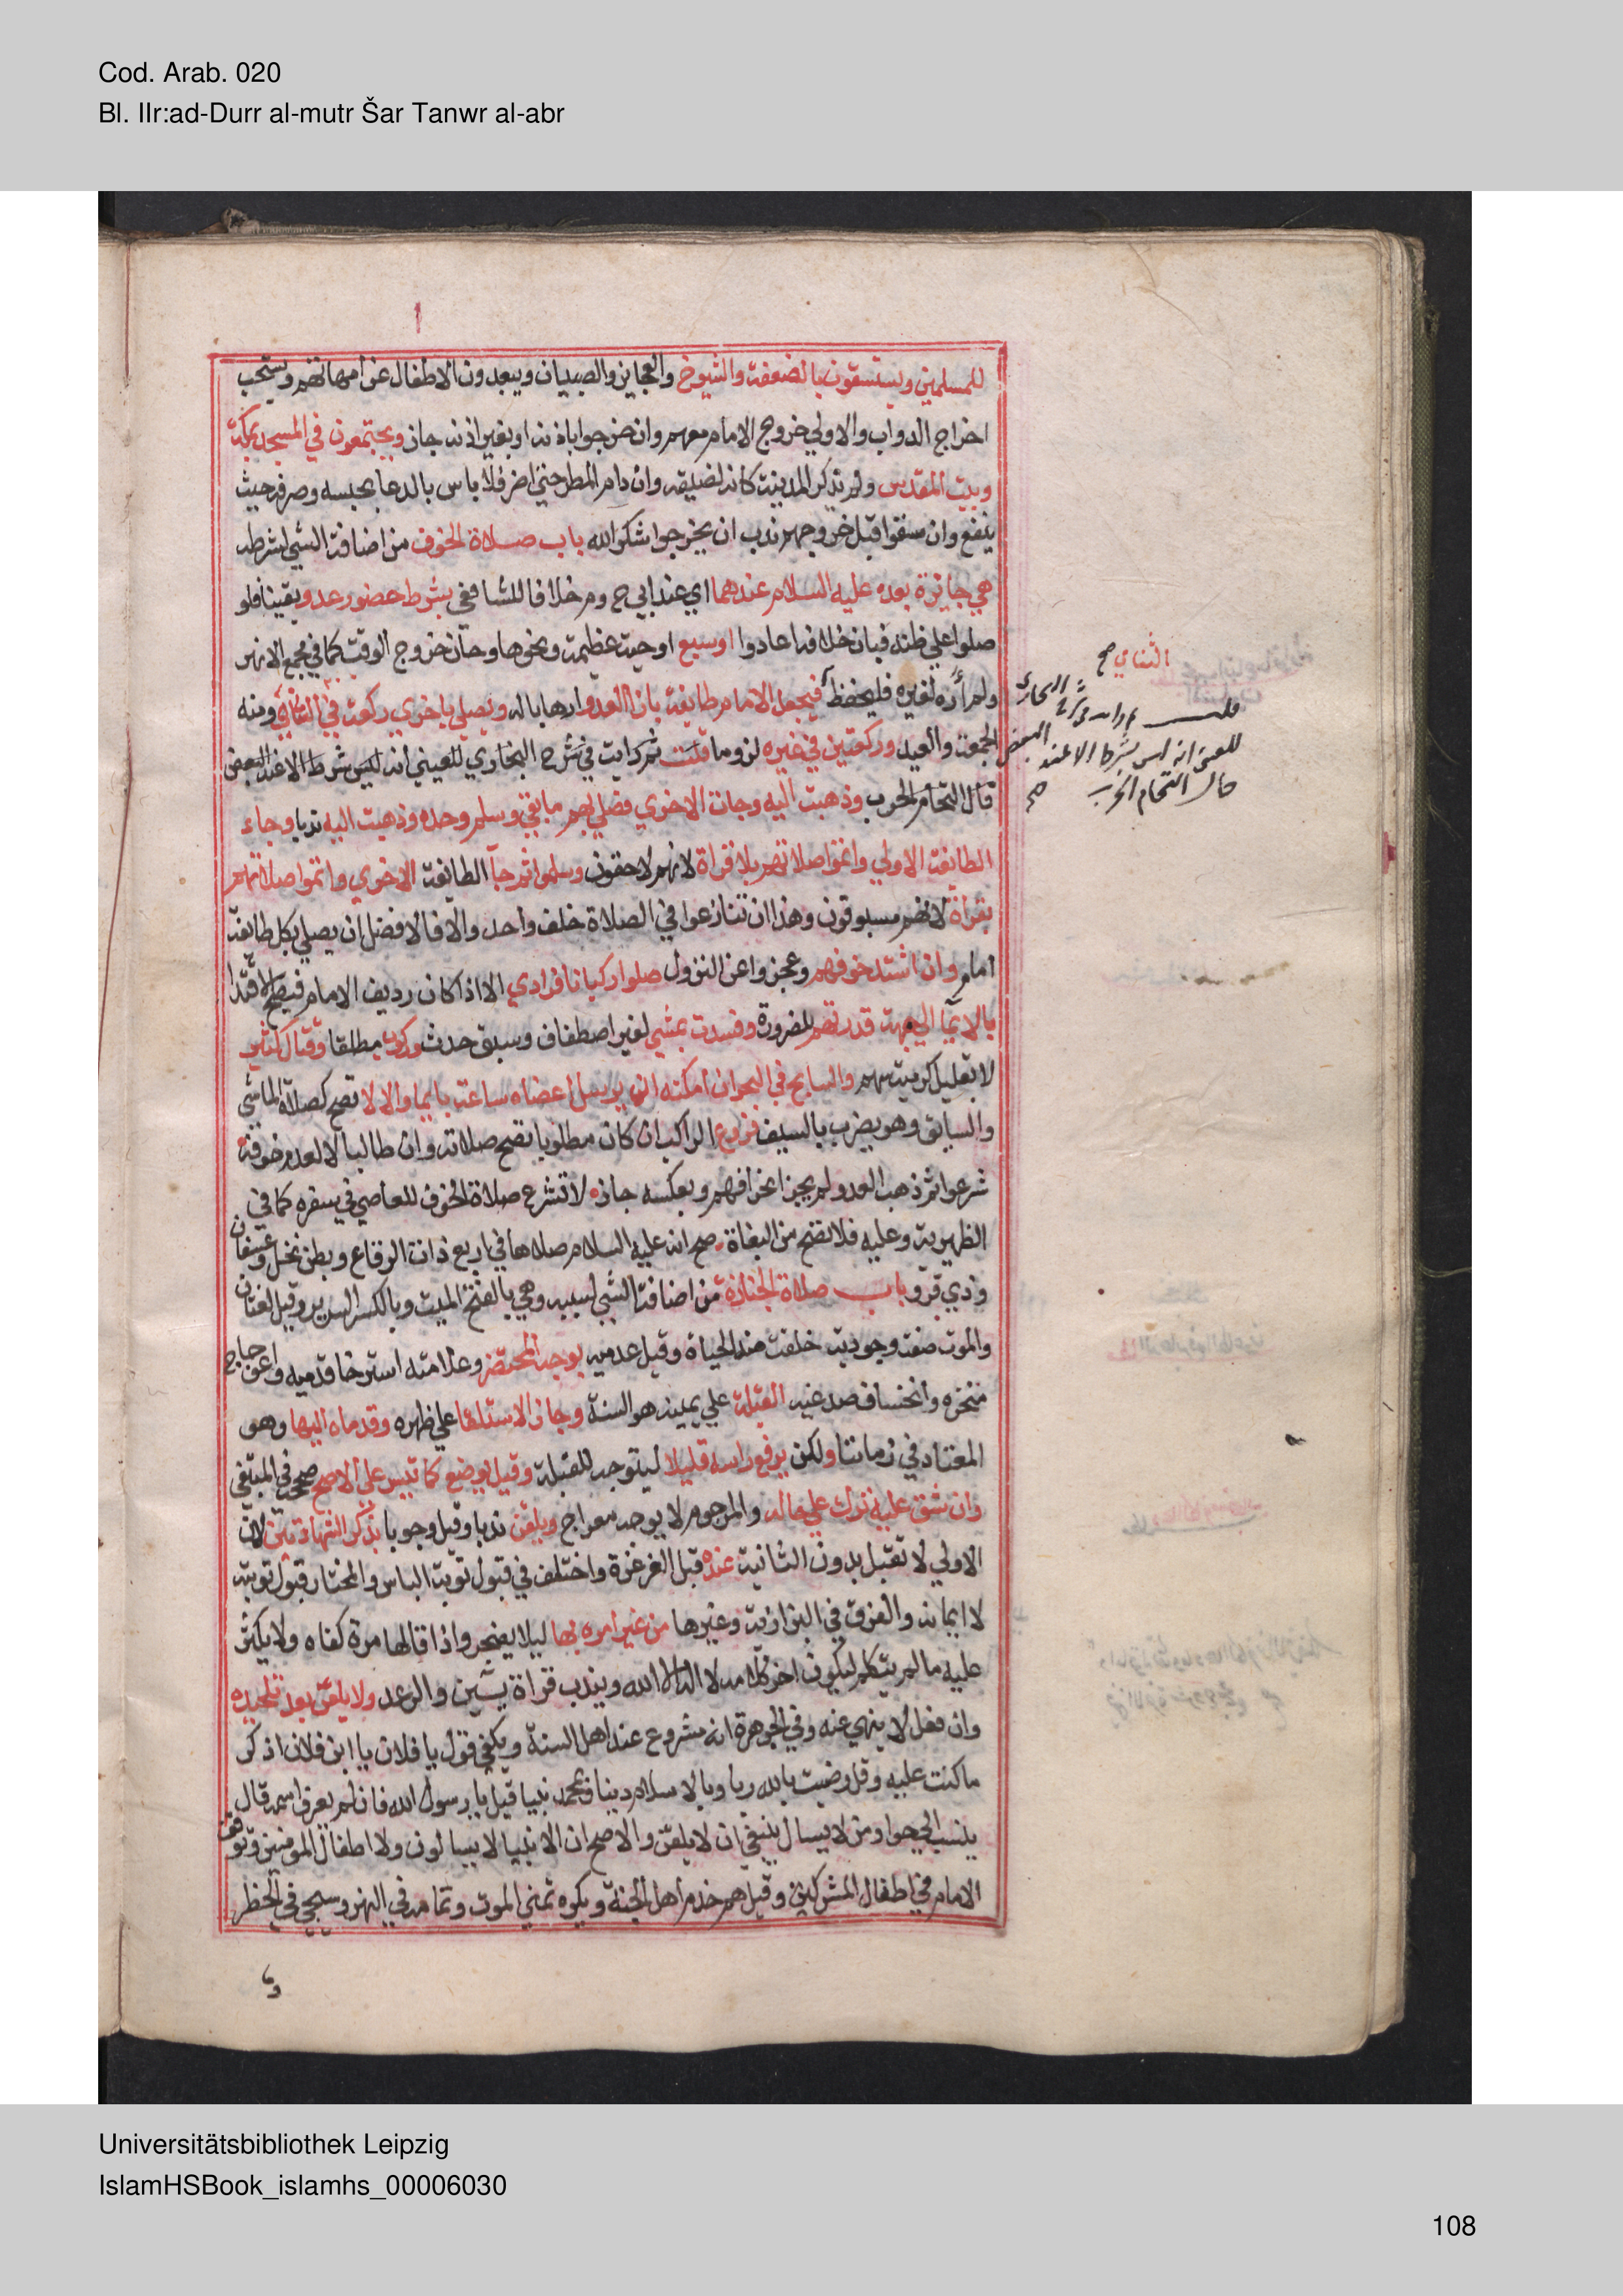 Cod. Arab. 020
Bl. IIr:ad-Durr al-mutr Šar Tanwr al-abr
للمسلمين ويستسقون بالضعفة والشيوخ والعجايز والصبيان ويبعدون الاطفال عن امهاتهم ويستحب
اخراج الدواب والاولي خروج الامام معهم وان خرجوا باذنه او بغير اذنه جاز ويجتمعون في المسجد بمكة
وبيت المقدس ولم تذكر المدينة كانه لضيقه وان دام المطر حتي اضر فلا باس بالدعا بحبسه وصرفه حيث
ينفع وان سقوا قبل خروجهم ندب ان يخرجوا شكرا لله باب صلاة الخوف من اضافة الشي لشرطه
هي جايزة بعده عليه السلام عندهما اي عند ابي ح وم خلافا للشا في بشرط حضور عدو يقينا فلو
صلوا علي ظنه فبان خلافه اعادوا او سبع او حية عظيمة ونحوها وحان خروج الوقت كما في مجمع الانهر
ولم أره لغيره فليحفظ فيجعل الامام طايفة بازا العدو ارهابا له ويصلي باخري ركعة في الثنائي ومنه
الجمعة والعيد وركعتين في غيره لزوما قلت ثم رايت في شرح البخاري للعيني انه ليس شرط الا عند البعض
قال التحام الحرب وذهبت اليه وجات الاخري فصلي بهم ما بقي وسلم وحده وذهبت اليه ندبا وجاء
الطائفة الاولي واتموا صلاتهم بلا قراة لانهم لاحقون وسلموا ثم جآ الطائفة الاخري واتموا صلاتهم
بقراة لانهم مسبوقون وهذا ان تنازعوا في الصلاة خلف واحد والا فالافضل ان يصلي بكل طايفة
امام وان اشتد خوفهم وعجزوا عن النزول صلوا ركبانا فرادي الا اذا كان رديف الامام فيصح الاقتدا
بالايما الي جهة قدرتهم للضرورة وفسدت بمشي لغير اصطفاف وسبق حدث وركوب مطلقا وقتال كثير
لا بقليل كرمية سهم والسابح في البحر ان امكنه ان يرسل اعضاه ساعة بايما والا لا تصح كصلاة الماشي
والسابق وهو يضرب بالسيف فروع الراكب ان كان مطلوبا تصح صلاته وان طالبا لا لعدم خوفه
شرعوا ثم ذهب العدو لم يجز انحرافهم وبعكسه جاز لا تشرع صلاة الخوف للعاصي في سفره كما في
الظهيرية وعليه فلا تصح من البغاة صح انه عليه السلام صلاها في اربع ذات الرقاع وبطن نخل وعسفان
وذي قرد باب صلاة الجنازة من اضافة الشي لسببه وهي بالفتح الميت وبالكسر السرير وقيل لغتان
والموت صفة وجودية خلقت ضد الحياة وقيل عدمية يوجه المحتضر وعلامته استرخا قدميه واعوجاج
منخره وانخساف صدغيه القبلة علي يمينه هو السنة وجاز الاستلقا علي ظهره وقدماه اليها وهو
المعتاد في زماننا ولكن يرفع راسه قليلا ليتوجه للقبلة وقيل يوضع كما تيسر علي الاصح صححه في المبتغي
وان شق عليه ترك علي حاله والمرجوم لا يوجه معراج ويلقن ندبا وقيل وجوبا بذكر الشهادتين لان
الاولي لا تقبل بدون الثانية عنده قبل الغرغرة واختلف في قبول توبة الياس والمختار قبول توبته
لا ايمانه والفرق في البزازية وغيرها من غير امره بها ليلا يضجر واذا قالها مرة كفاه ولا يكثر
عليه ما لم يتكلم ليكون اخر كلامه لا اله الا الله ويندب قراة يسين والرعد ولا يلقن بعد تلحيده
وان فعل لا ينهي عنه وفي الجوهرة انه مشروع عند اهل السنة ويكفي قول يا فلان يا ابن فلان اذكر
ما كنت عليه وقل رضيت بالله ربا وبالاسلام دينا وبمحمد نبيا قيل يا رسول الله فان لم يعرف اسمه قال
ينسب الي حوا ومن لا يسال ينبغي ان لا يلقن والاصح ان الانبيا لا يسالون ولا اطفال المومنين وتوقف
الامام في اطفال المشركين وقيل هم خدم اهل الجنة ويكره تمني الموت وتمامه في النهر وسيجي في الحظر
الثنائي صح
للعيني انه ليس بشرط الا عند البعض
حال التحام الحرب صح
Universitätsbibliothek Leipzig
IslamHSBook_islamhs_00006030
108